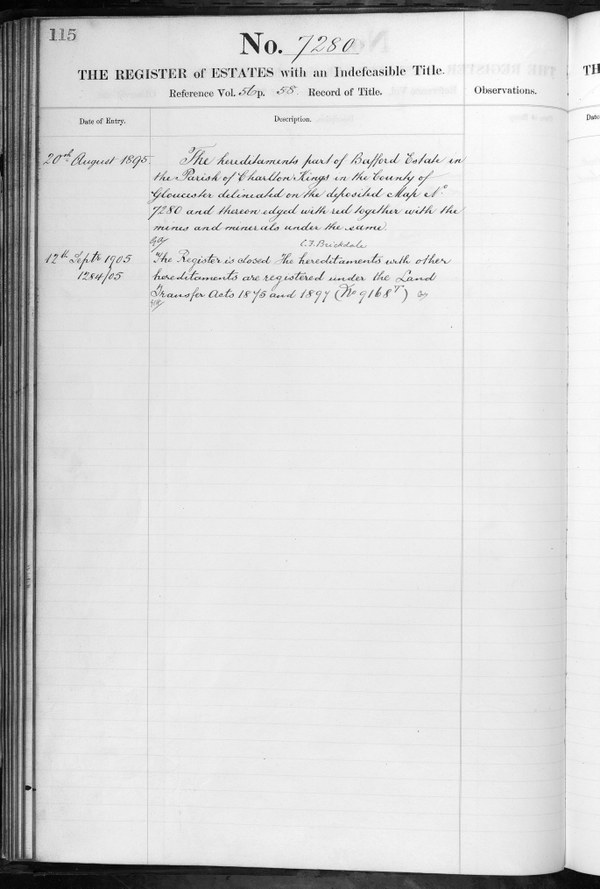 115
No. 7280
THE REGISTER of ESTATES with an Indefeasible Title.
Reference Vol. 56 p. 58 Record of Title.
Observations.
Date of Entry.
Description.
20th August 1895.
The hereditaments part of Bafford Estate in
the Parish of Charlton Kings in the County of
Gloucester delineated on the deposited Map No
7280 and thereon edged with red together with the
mines and minerals under the same
C. F. Brickdale
12th Septr 1905
1284/05
The Register is closed The hereditaments with other
hereditaments are registered under the Land
Transfer Acts 1875 and 1897 (No 9168 T)
TH
Date